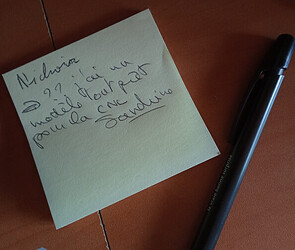 Nichoir
→ ?? j'ai un
modèle tout prêt
pour la CNC
Sanduino